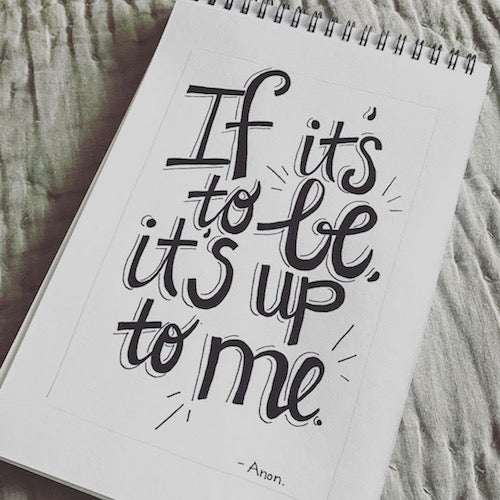 If it's
to be,
it's up
to me.
- Anon.